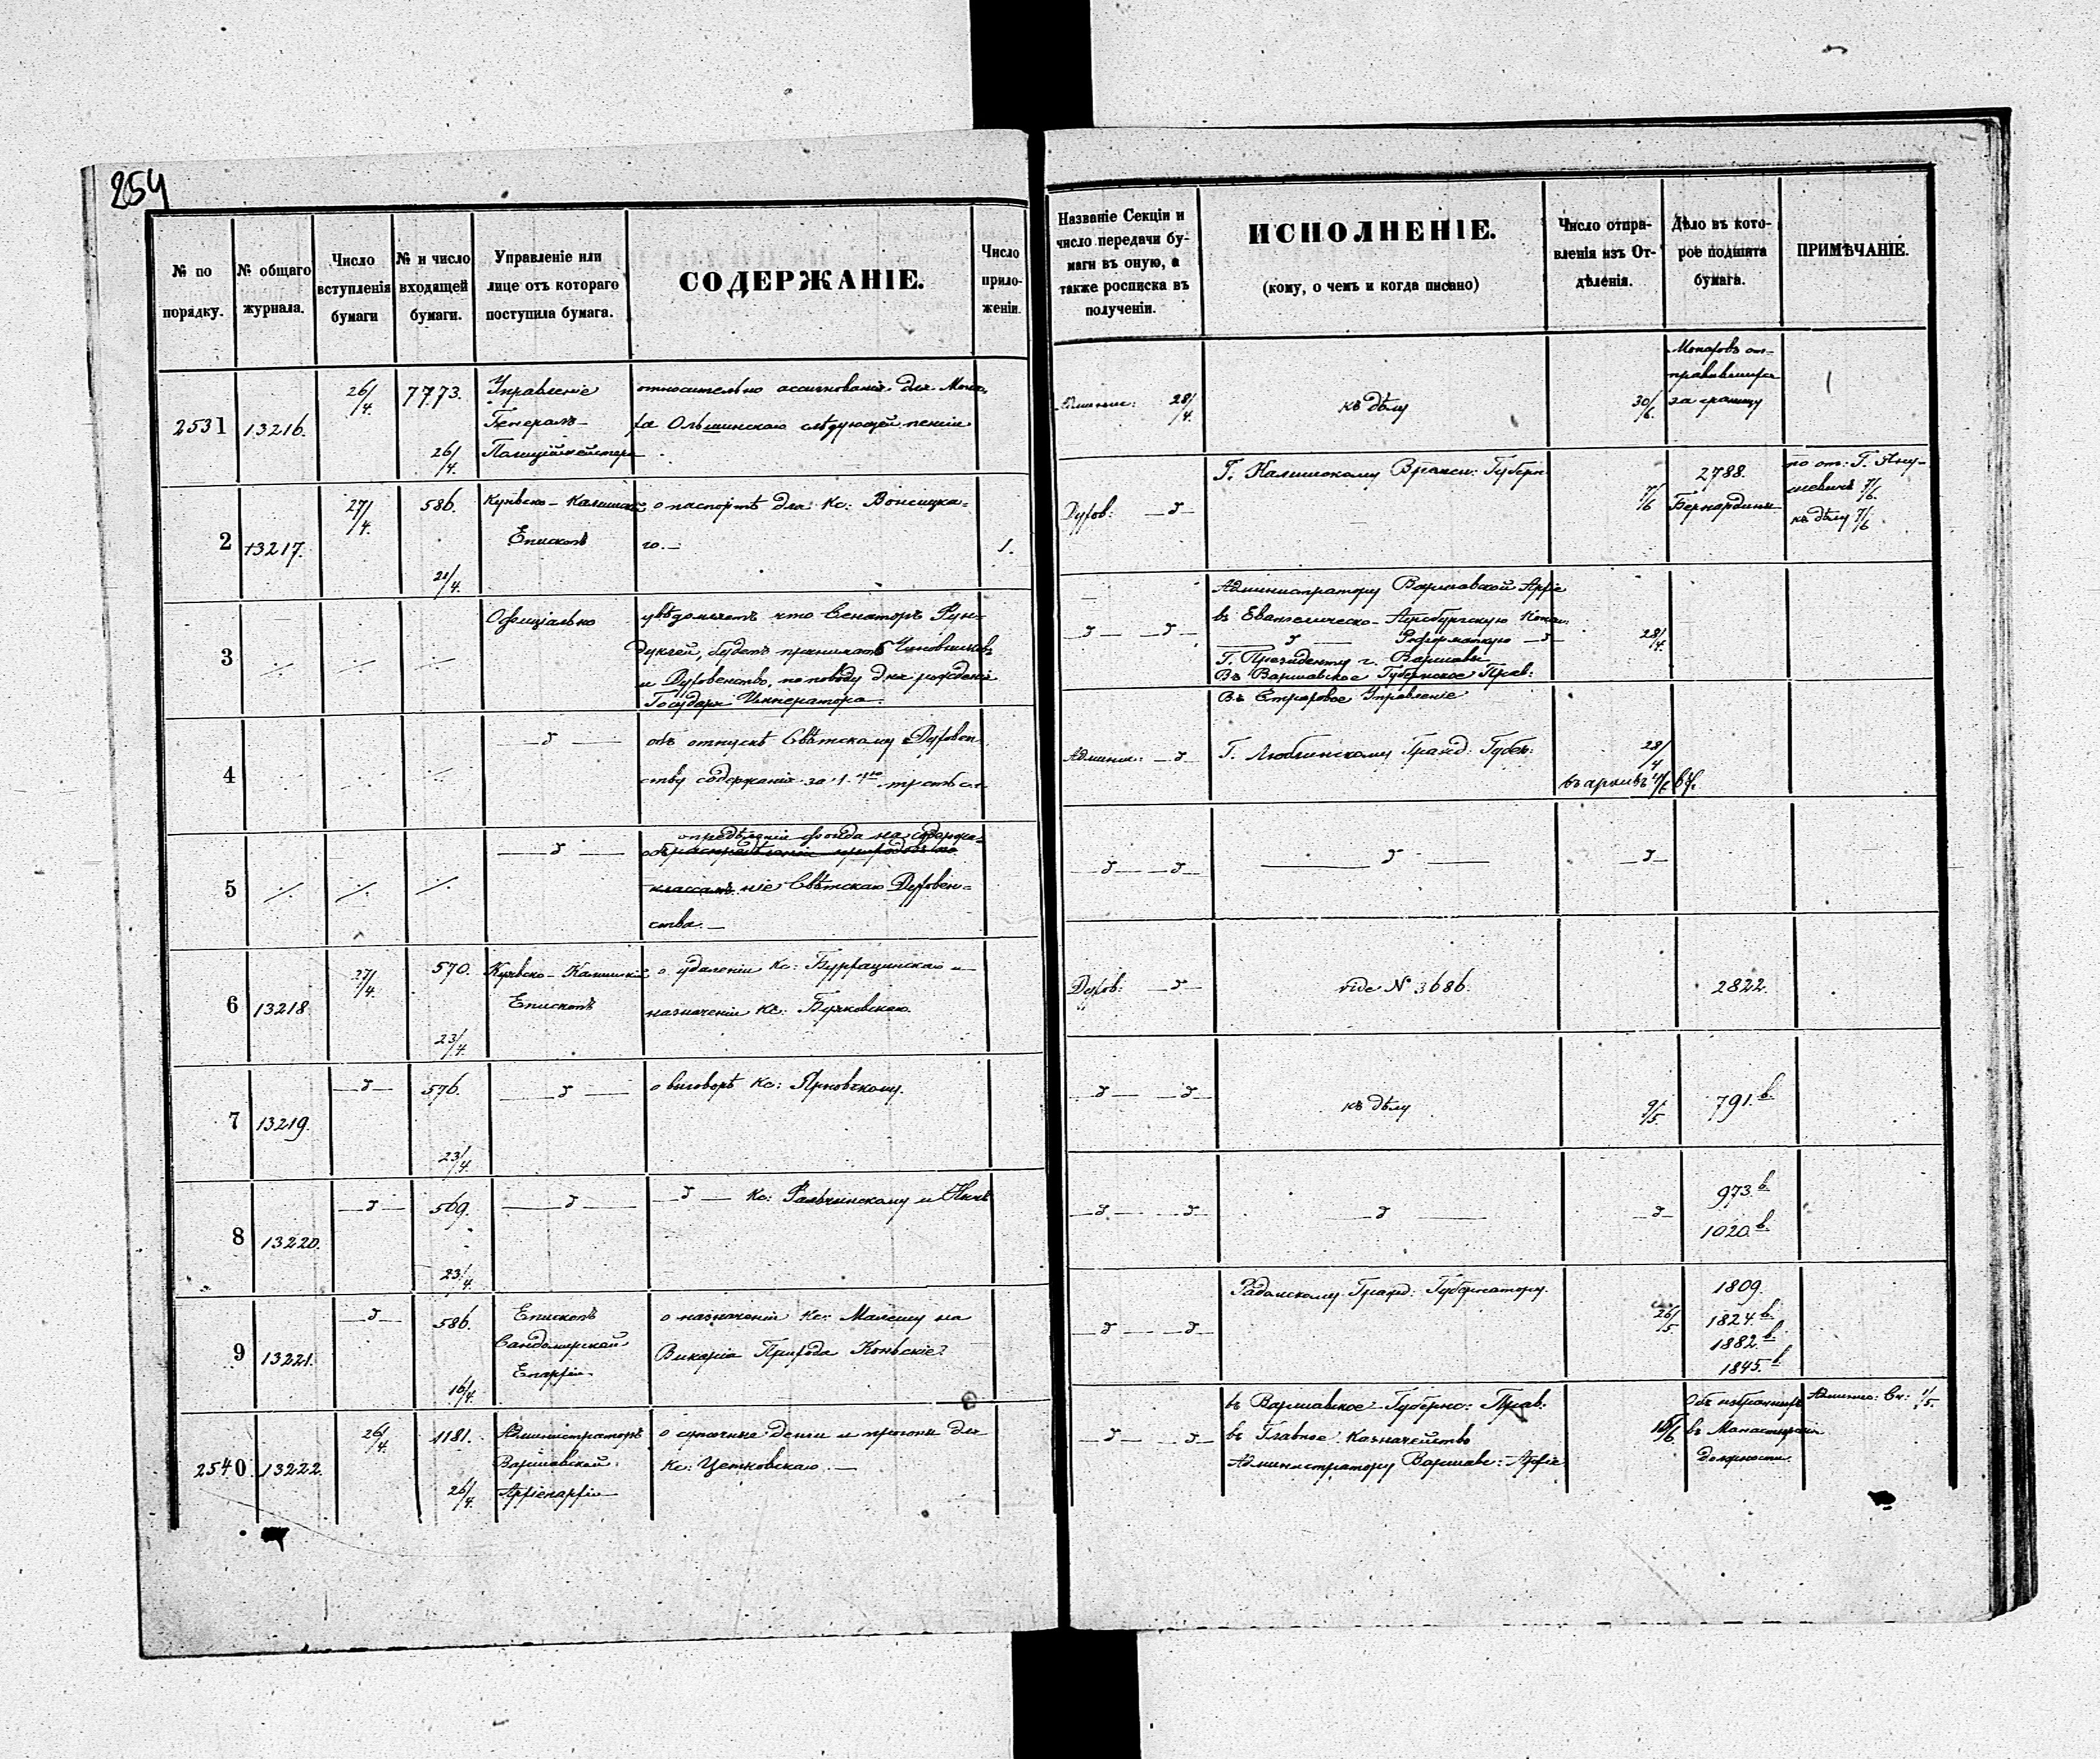 254
№ по порядку.
№ общаго журнала.
Число вступленія бумаги
№ и число входящей бумаги.
Управленіе или лице отъ котораго поступила бумага.
СОДЕРЖАНІЕ.
Число приложеніи.
Названіе Секціи и число передачи бумаги въ оную, а также росписка въ полученіи.
ИСПОЛНЕНІЕ.
(кому, о чемъ и когда писано)
Число отправленія изъ Отдѣленія.
Дѣло въ которое подшита бумага.
ПРИМѢЧАНІЕ.
2531
13216.
26/4.
7773.
26/4.
Управленіе
Генералъ-
Полиціймейстера
относительно ассигнованія для Мона-
ха Ольшинскаго слѣдующей пенсіи
28/4.
къ дѣлу
30/6.
Монаховъ от-
правившихся
за границу
2
13217.
27/4.
586.
21/4.
Куявско-Калишскій
Епископъ
о паспортѣ для Кс:
го.—
1.
Духов:
Г. Калишскому Граждн: Губерн
7/6
2788.
Бернардины
по от: Г. Яну-
шевича 7/6.
къ дѣлу 7/6
3
Офиціально
увѣдомляетъ что Сенаторъ Фун-
дуклей, будетъ принимать Чиновниковъ
и Духовенство, по поводу дня рожденія
Государя Императора.
Администратору Варшавской Архіе
въ Евангелическо-Аугсбургскую Конси
Реформатскую
Г. Президенту г. Варшавы
Въ Варшавское Губернское Прав:
Въ Управленіе
28/4.
4
объ отпускѣ Свѣтскому Духовен
ству содержанія за 1
Админис:
Г. Люблинскому Гражд: Губер:
28/4
въ архивъ
5
опредѣленіи фонда на содержа-
классамъ ніе Свѣтскаго Духовен-
ства.—
6
13218
27/4.
570.
23/4.
Куявско-Калишскій
Епископъ
о удаленіи Кс: и
назначеніи Кс: Бучковскаго.
Духов:
vide № 3686.
2822.
7
13219.
576.
23/4.
о выговорѣ Кс: Яновскому.
къ дѣлу
9/5.
791.b.
8
13220.
569.
23/4.
Кс: Фальчинскому и
973.b.
1020.b.
9
13221.
586.
16/4.
Епископъ
Сандомирской
Епархіи.
о назначеніи Кс: Малешу на
Викарія Прихода Коньскіе?
Радомскому Гражд: Губернатору.
26/5.
1809.
1824.b.
1882.b.
1845.b.
2540.
13222.
26/4.
1181.
26/4.
Администраторъ
Варшавской
Архіепархіи
о суточные деньги и прогоны для
Кс: Цетковскаго.—
въ Варшавское Губернс: Прав:
въ Главное Казначейство
Администратору Варшавс: Архіе
Объ избранныхъ
въ Монастырскія
должности.
1/5.